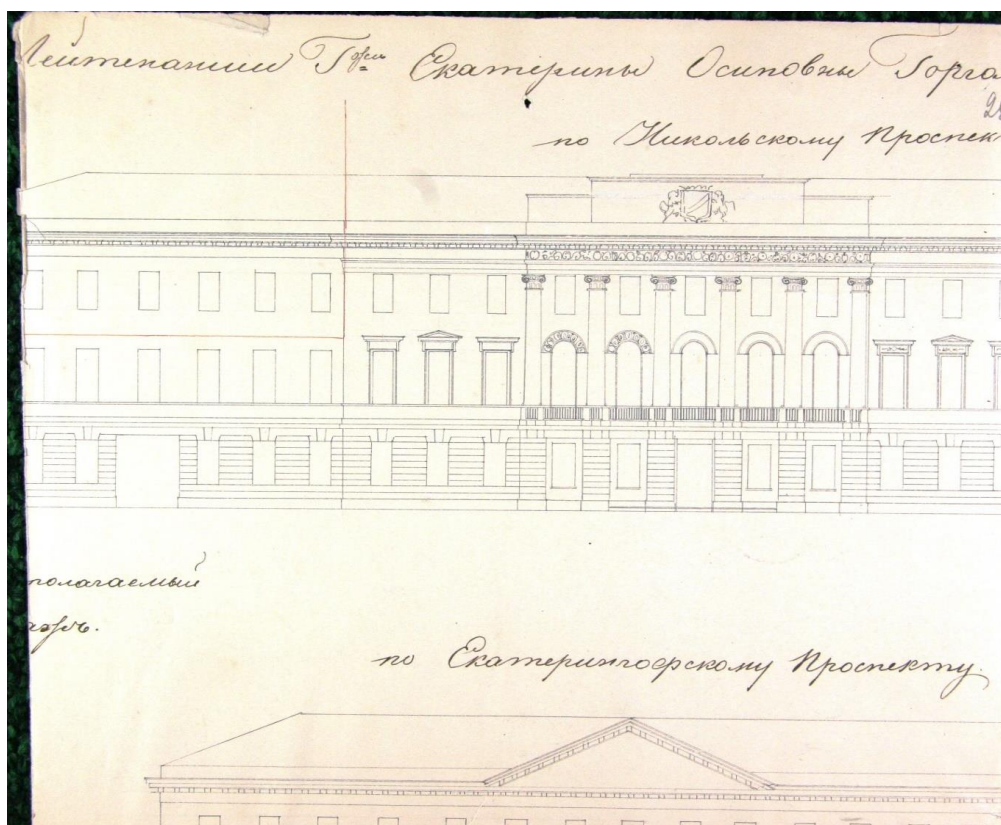 Лейтенанши Г-жи Екатерины Осиповны Горго
по Никольскому Проспек
полагаемый
по Екатерингофскому Проспекту.